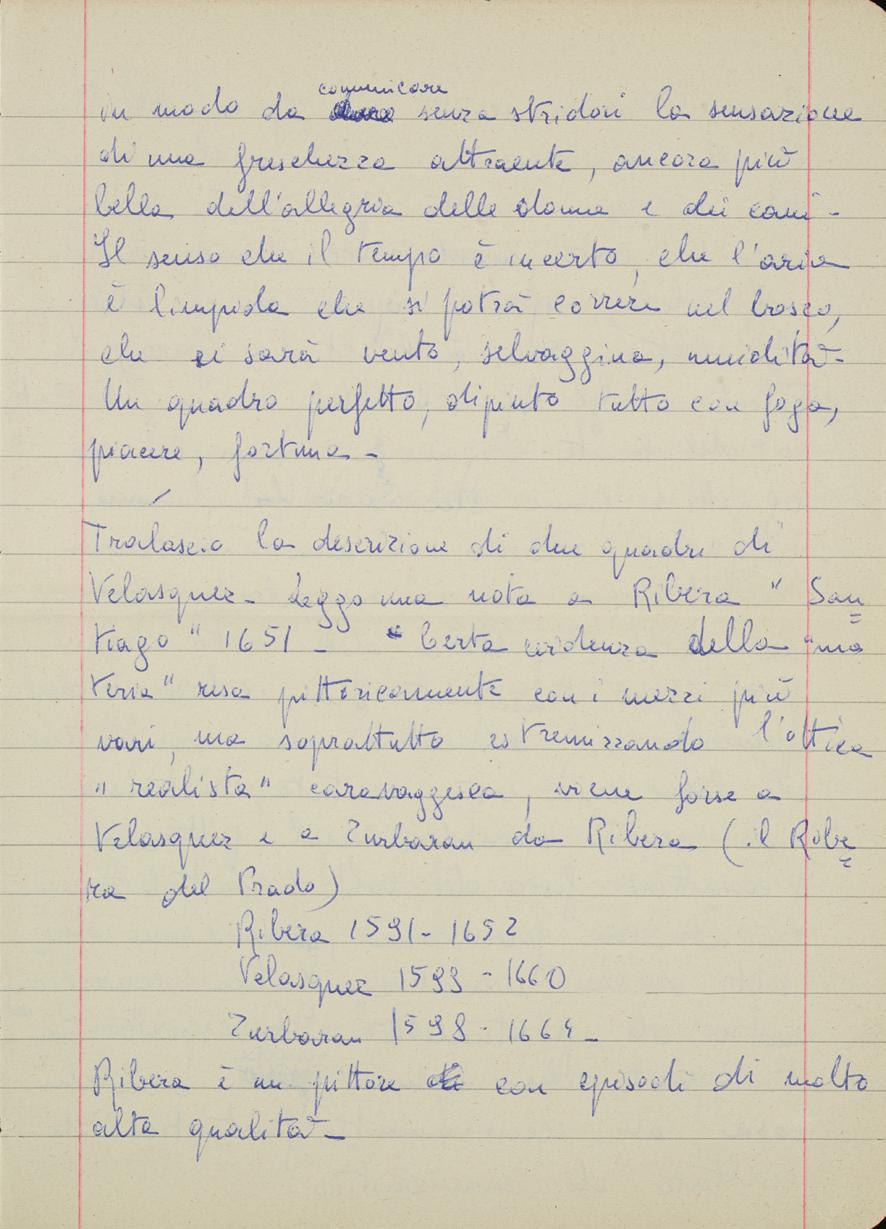 comunicare
in modo da senza stridori la sensazione
di una freschezza attraente, ancora più
bella dell'allegria delle donne e dei cani -
Il senso che il tempo è incerto, che l'aria
è limpida che si potrà correre nel bosco,
che ci sarà vento, selvaggina, umidità -
Un quadro perfetto, dipinto tutto con foga,
piacere, fortuna -
Tralascio la descrizione di due quadri di
Velasquez - Leggo una nota a Ribera " San
tiago " 1651 - Certa evidenza della "ma
teria" resa pittoricamente con i mezzi più
vari, ma soprattutto estremizzando l'ottica
" realista " caravaggesca, viene forse a
Velasquez e a Zurbaran da Ribera (il Ribe
ra del Prado)
Ribera 1591 - 1652
Velasquez 1599 - 1660
Zurbaran 1598 - 1664 -
Ribera è un pittore con episodi di molto
alta qualità -